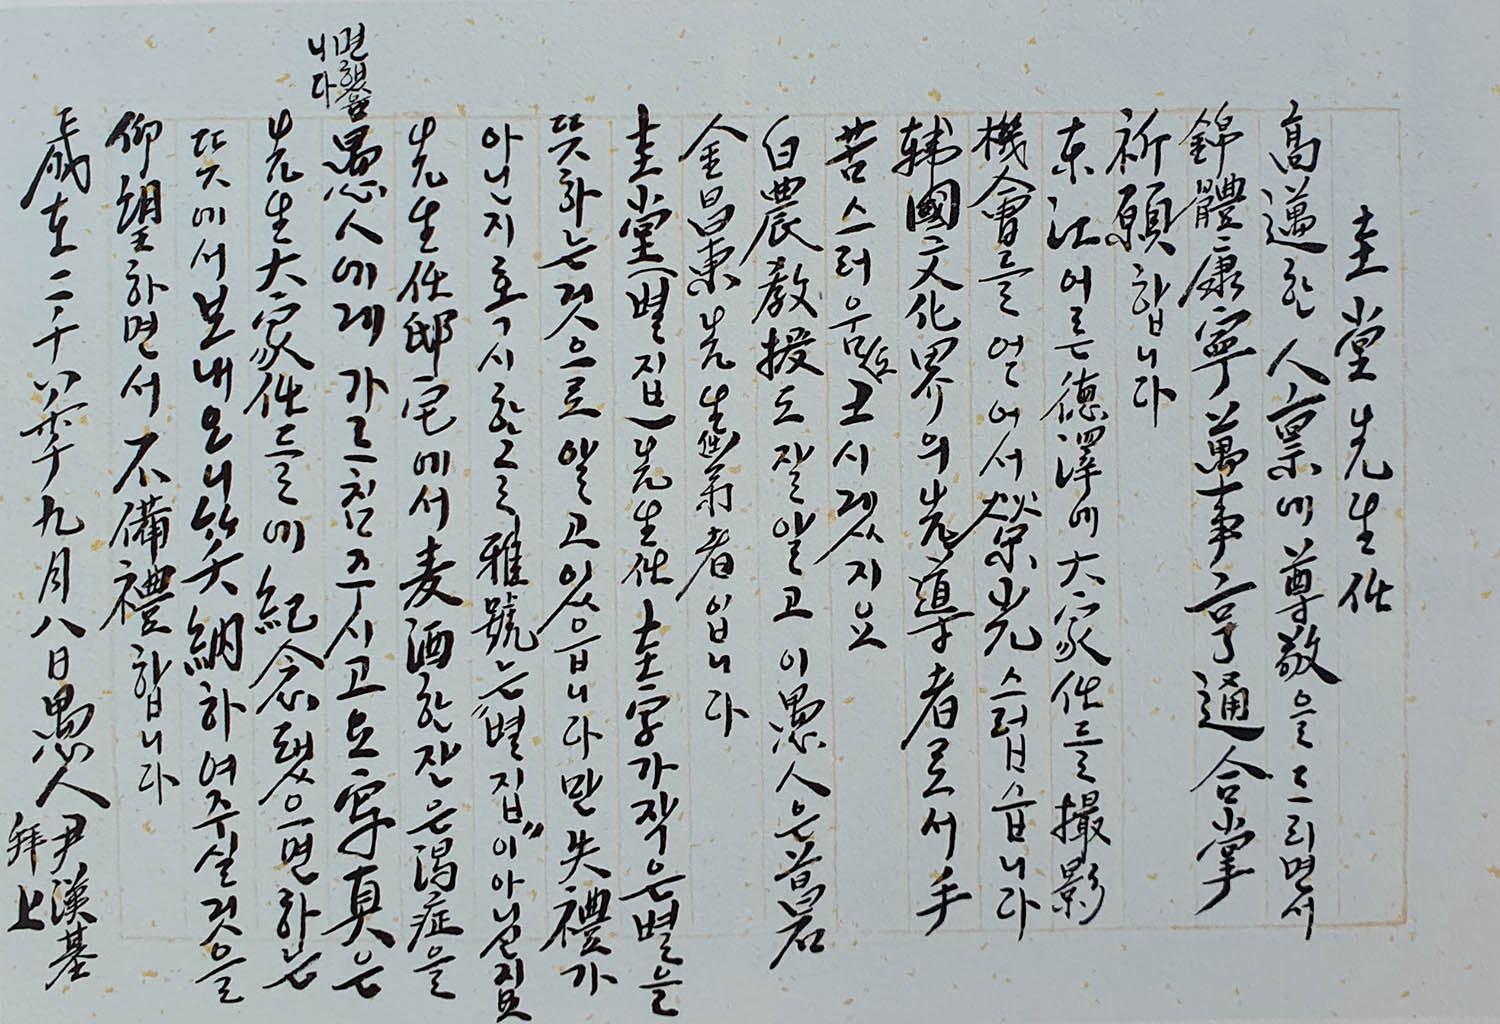 圭堂先生任
高邁한 人稟에 尊敬을 드리면서
錦體康寧萬事亨通 合掌
祈願합니다
東江어른 德澤에 大家任들 撮影
機會를 얻어서 榮光스럽습니다
韓國文化界의 先導者로서 手
苦스러움도 크시겠지요
白農敎授도 잘알고 이愚人은 昌石
金昌東先生任 弟者입니다
圭堂(별집) 先生任 圭字가 작은별을
뜻하는것으로 알고있읍니다만 失禮가
아닌지 혹시 한그르 雅號는 "별집"이아닌지요
先生任邸宅에서 麦酒한잔은 渴症을
면했습
니다
愚人에게 가르침 주시고요 寫真은
先生大家任들에 紀念됐으면하는
뜻에서 보내오니 笑納하여주실것을
仰望하면서 不備禮합니다
歲在二千八年九月八日 愚人 尹漢基
拜上